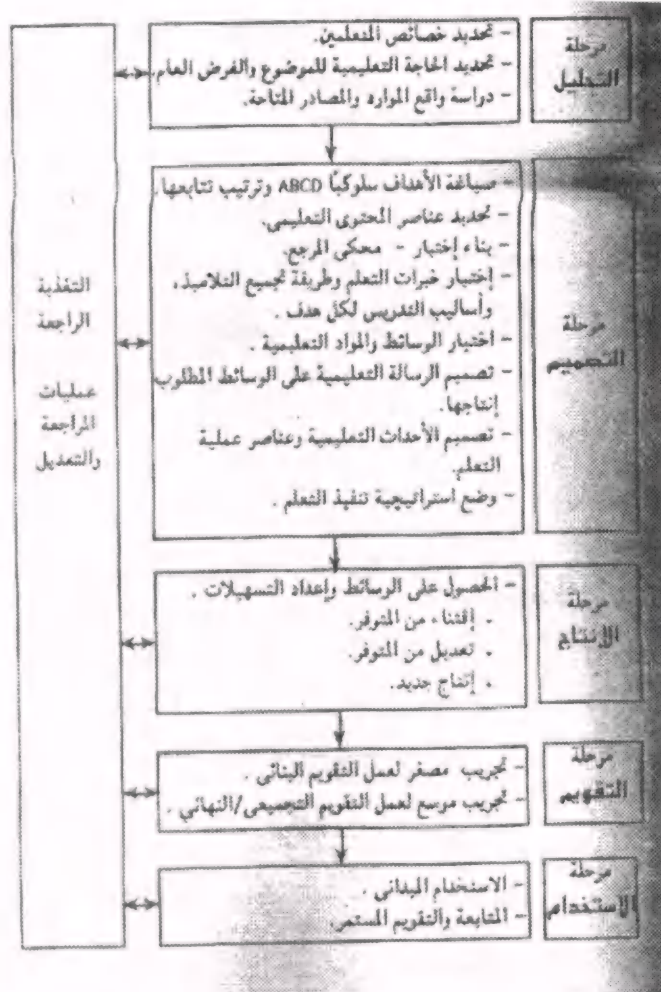 مرحلة
التحليل
- تحديد خصائص المتعلمين.
- تحديد الحاجة التعليمية للموضوع والغرض العام.
- دراسة واقع الموارد والمصادر المتاحة.
مرحلة
التصميم
- صياغة الأهداف سلوكيًا ABCD وترتيب تتابعها.
- تحديد عناصر المحتوى التعليمى.
- بناء إختبار - محكى المرجع.
- إختيار خبرات التعلم وطريقة تجميع التلاميذ،
وأساليب التدريس لكل هدف .
- اختيار الوسائط والمواد التعليمية .
- تصميم الرسالة التعليمية على الوسائط المطلوب
إنتاجها.
- تصميم الأحداث التعليمية وعناصر عملية
التعلم.
- وضع استراتيجية تنفيذ التعلم .
مرحلة
الإنتاج
- الحصول على الوسائط وإعداد التسهيلات .
. إقتناء من المتوفر.
. تعديل من المتوفر.
. إنتاج جديد.
مرحلة
التقويم
- تجريب مصغر لعمل التقويم البنائى .
- تجريب موسع لعمل التقويم التجميعى/النهائي .
مرحلة
الاستخدام
- الاستخدام الميدانى .
- المتابعة والتقويم المستمر.
التغذية
الراجعة
عمليات
المراجعة
والتعديل